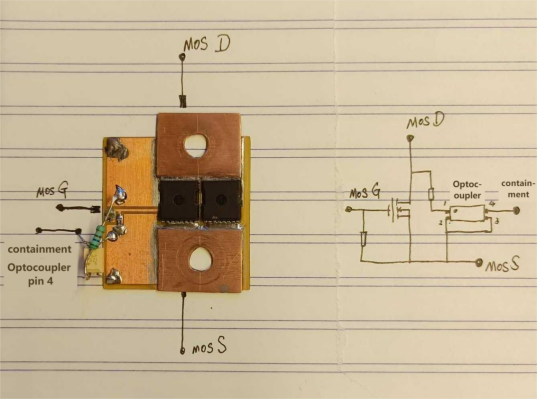 MOS D
MOS G
containment
Optocoupler
pin 4
MOS S
MOS D
MOS G
Optoc-
oupler
contain-
ment
1
4
2
3
MOS S